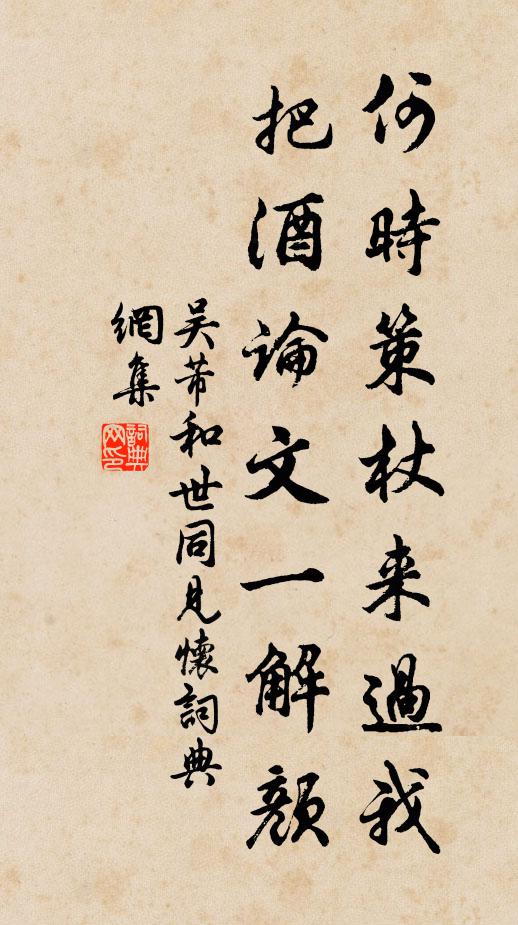 何時策杖来過我
把酒論文一解顔
吴芾和世同見懷詞典
網集
詞典
网印